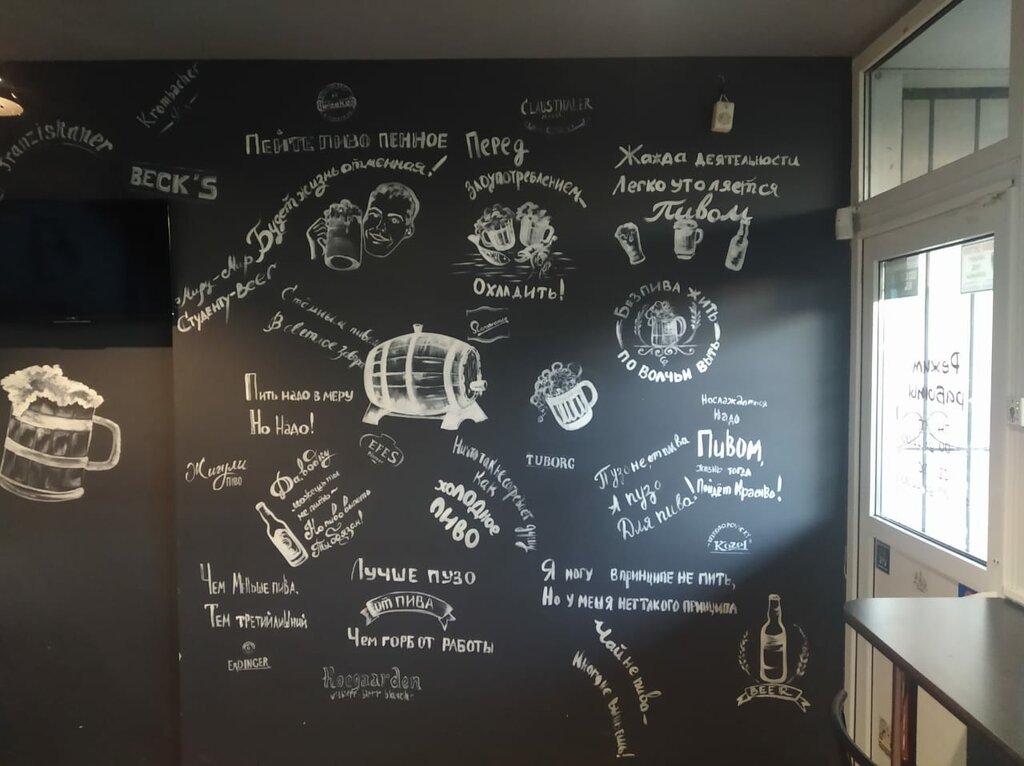 Krombacher
Franziskaner
BECK'S
CLAUSTHALER
Пейте пиво пенное
Будет жизнь отменная!
Перед
Злоупотреблением
Охладить!
Жажда деятельности
Легко утоляется
Пивом
Миру-Мир
Студенту-Beer
С тёмным пивом
В светлое завтра
Без пива жить
По волчьи выть
Пить надо в меру
Но Надо!
EFES
Жигули
пиво
TUBORG
Наслаждаться
Надо
Пивом,
жизнь тогда
Пойдёт Красиво!
Ничто так не согреет душу
Как
холодное
пиво
Пузо не от пива
А пузо
Для пива!
Kozel
На пиво
Ты обязан!
Чем Меньше пива,
Тем третий лишний
ERDINGER
Лучше пузо
от пива
Чем горб от работы
Я могу в принципе не пить,
Но у меня нет такого принципа
Чай не пиво-
Много не выпьешь!
BEER
Режим
работы